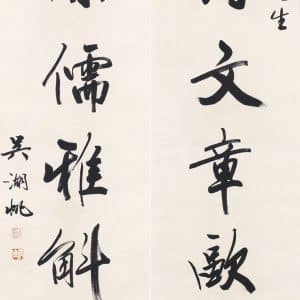 生
文章歐
儒雅斛
吳湖帆